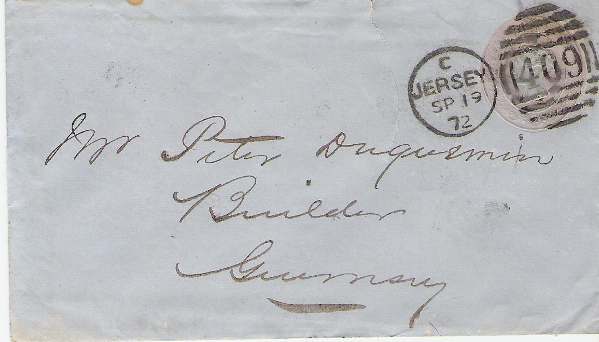 C
JERSEY
SP 19
72
409
Mr Peter Duquemin
Builder
Guernsey